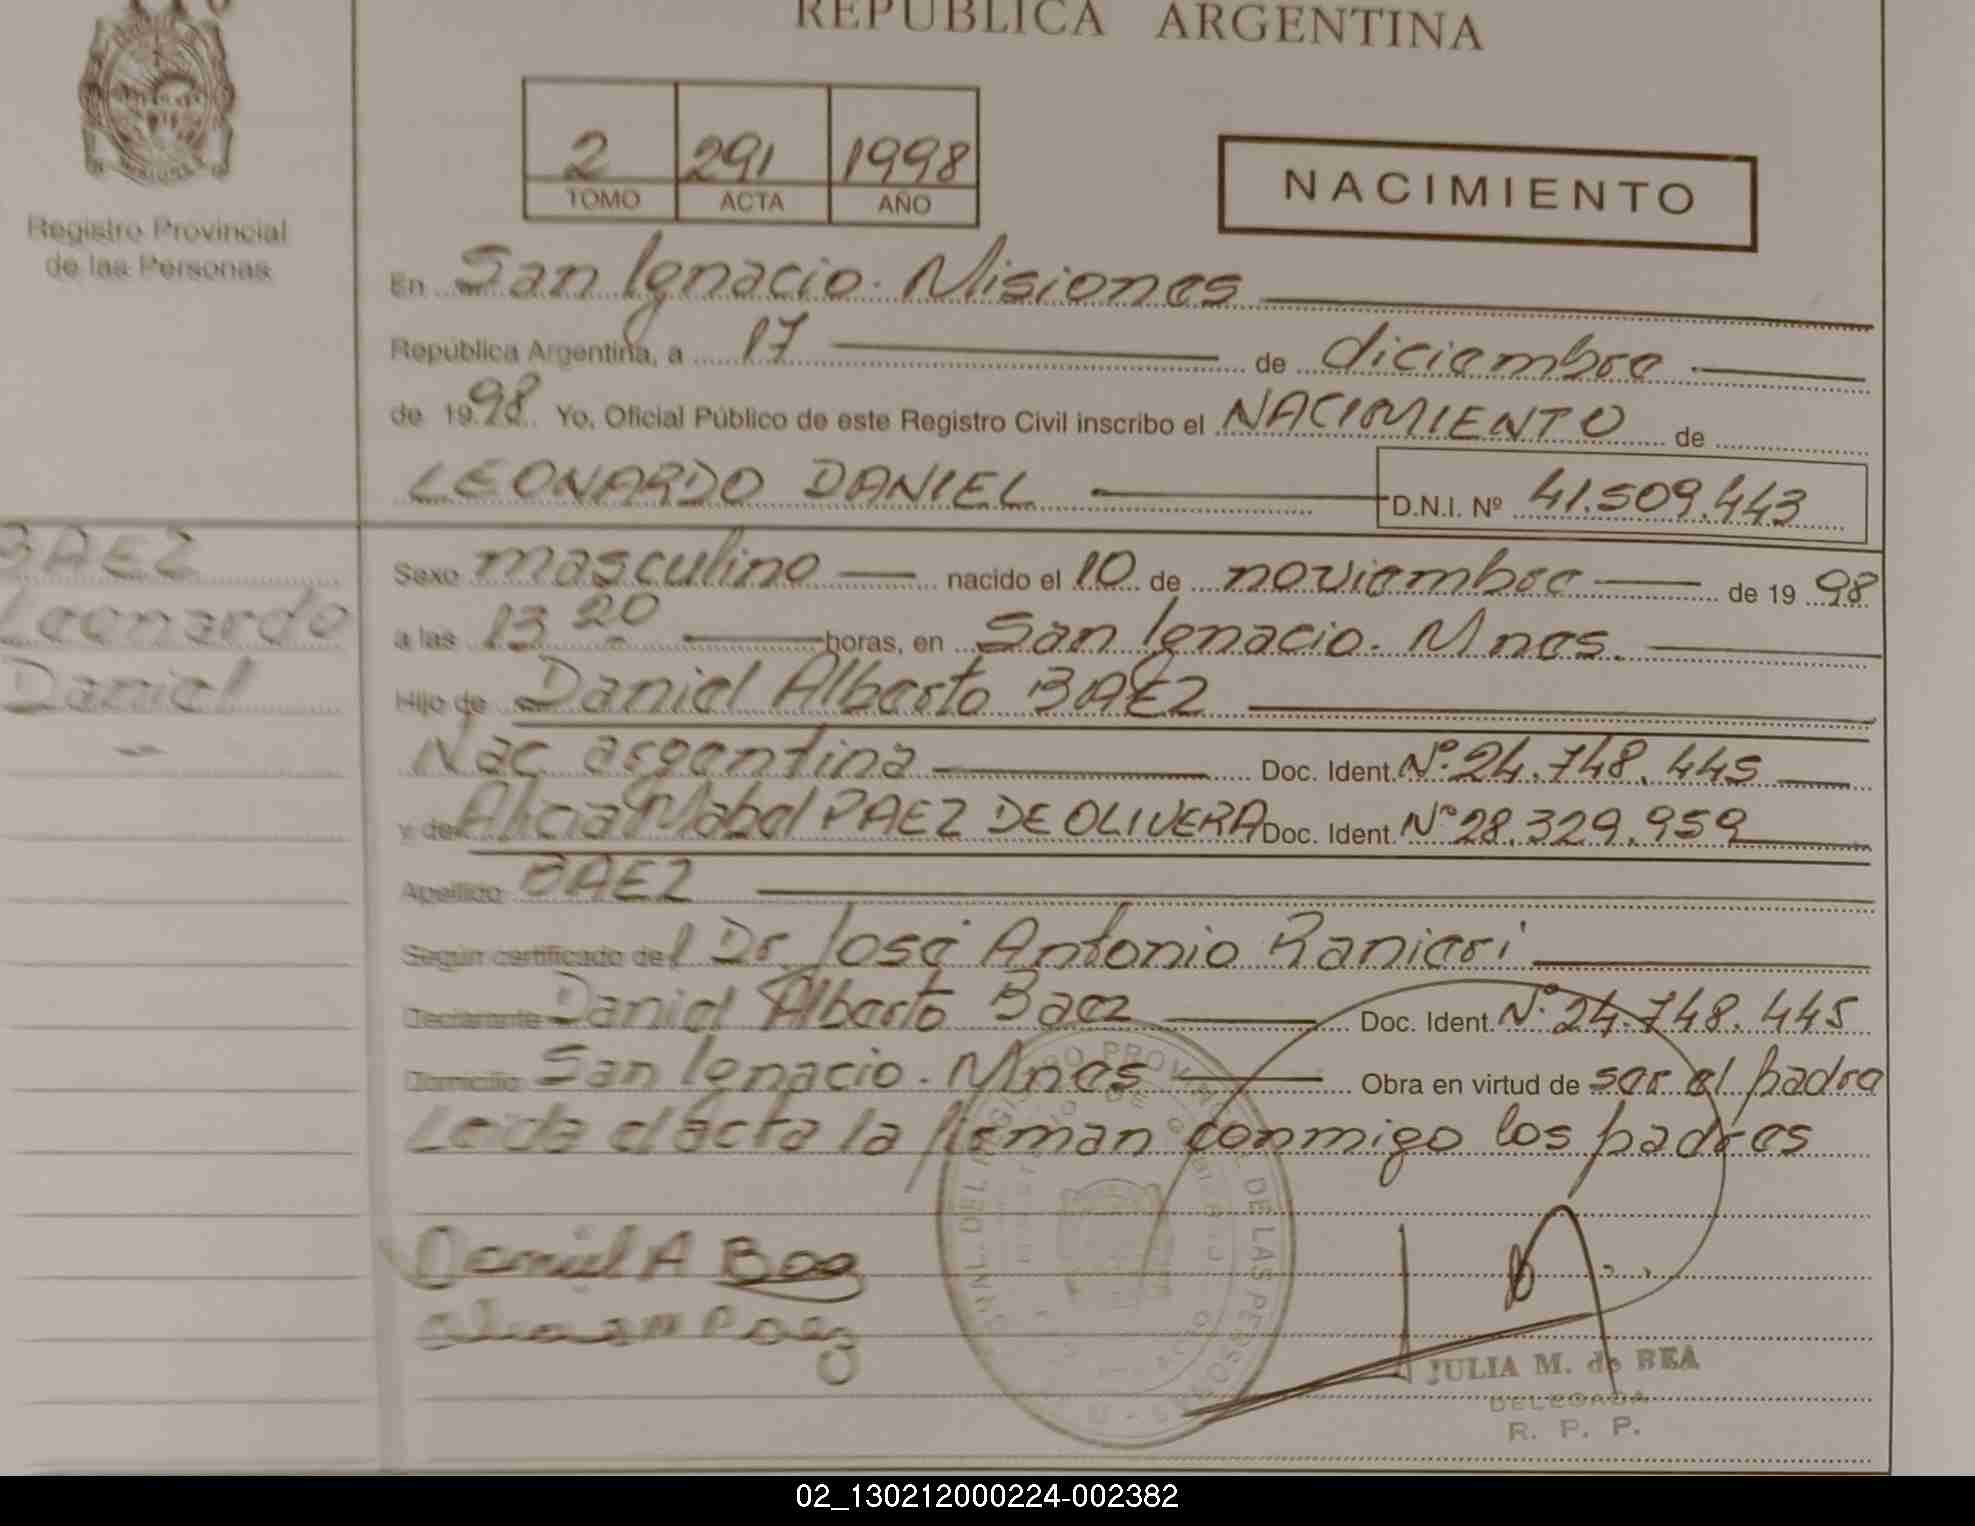 REPUBLICA ARGENTINA
2 291 1998
TOMO ACTA AÑO
NACIMIENTO
Registro Provincial
de las Personas
En San Ignacio. Misiones
República Argentina, a 17 de diciembre
de 1998 Yo, Oficial Público de este Registro Civil inscribo el NACIMIENTO de
LEONARDO DANIEL D.N.I. Nº 41.509.443
BAEZ
Leonardo
Daniel
Sexo masculino nacido el 10 de noviembre de 1998
a las 13 20 horas, en San Ignacio. Mnes.
Hijo de Daniel Alberto BAEZ
Nac argentina Doc. Ident. Nº 24.748.445
y de Alicia Mabel PAEZ DE OLIVERA Doc. Ident. Nº 28.329.959
Apellido BAEZ
Según certificado del Dr. José Antonio Ranieri
Declarante Daniel Alberto Baez Doc. Ident. Nº 24.748.445
Domicilio San Ignacio. Mnes Obra en virtud de ser el padre
Leida el acta la firman conmigo los padres
Daniel A Baez
JULIA M. de BEA
DELEGADA
R. P. P.
02_130212000224-002382